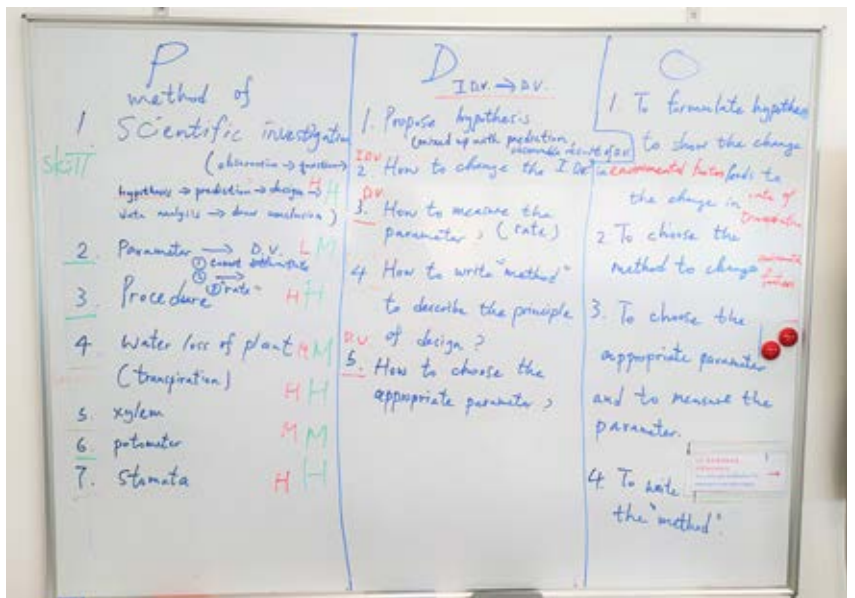 P
method of
1 Scientific investigation
skill
(observation → question →
hypothesis → prediction → design → H H
data analysis → draw conclusion)
2. Parameter → D.V. L M
①
② →
③ "rate"
3. Procedure H H
4 Water loss of plant H M
(transpiration) H H
5. xylem
6. potometer M M
7. Stomata H H
D
I D.V. → D.V.
1. Propose hypothesis
(mixed up with prediction,
observable result of D.V.
I D.V.
2 How to change the I D.V.
D.V.
3. How to measure the
parameter? (rate)
4 How to write "method"
to describe the principle
of design?
D.V.
5. How to choose the
appropriate parameter?
O
1. To formulate hypothesis
to show the change
in environmental factors leads to
the change in rate of
transpiration
2 To choose the
method to change
factors
3. To choose the
appropriate parameter
and to measure the
parameter.
4. To write
the "method".